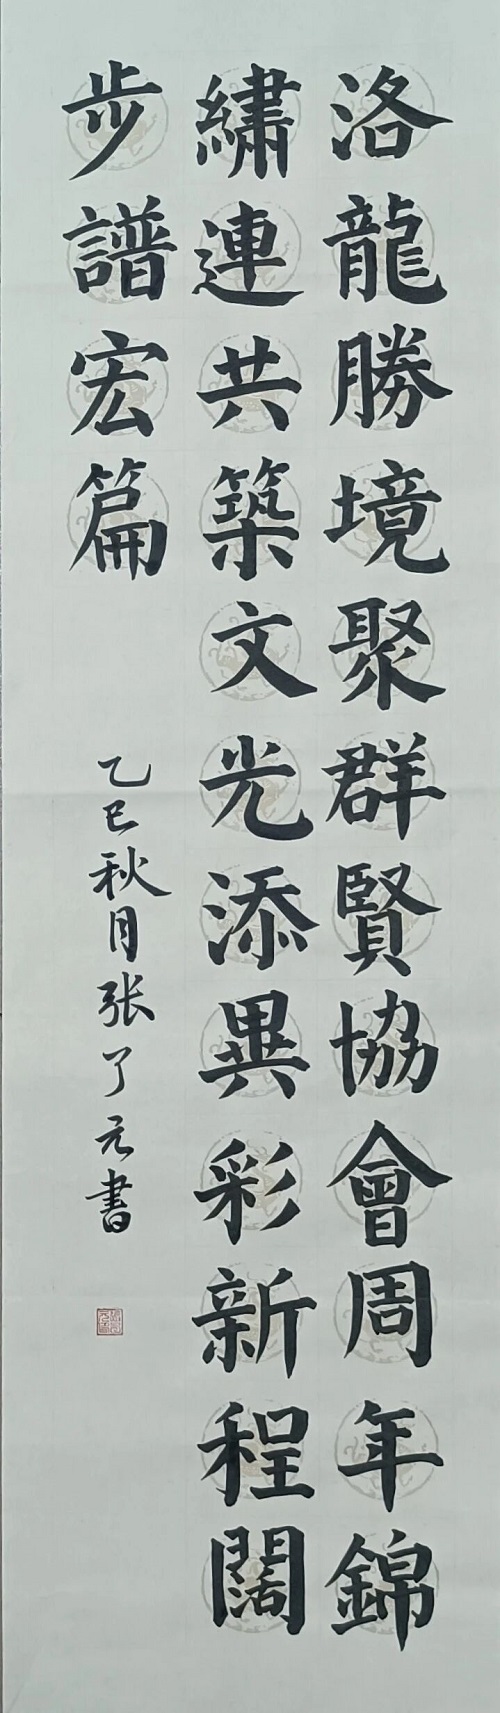 洛龍勝境聚群賢協會周年錦
繡連共築文光添異彩新程闊
步譜宏篇
乙巳秋月张了元書